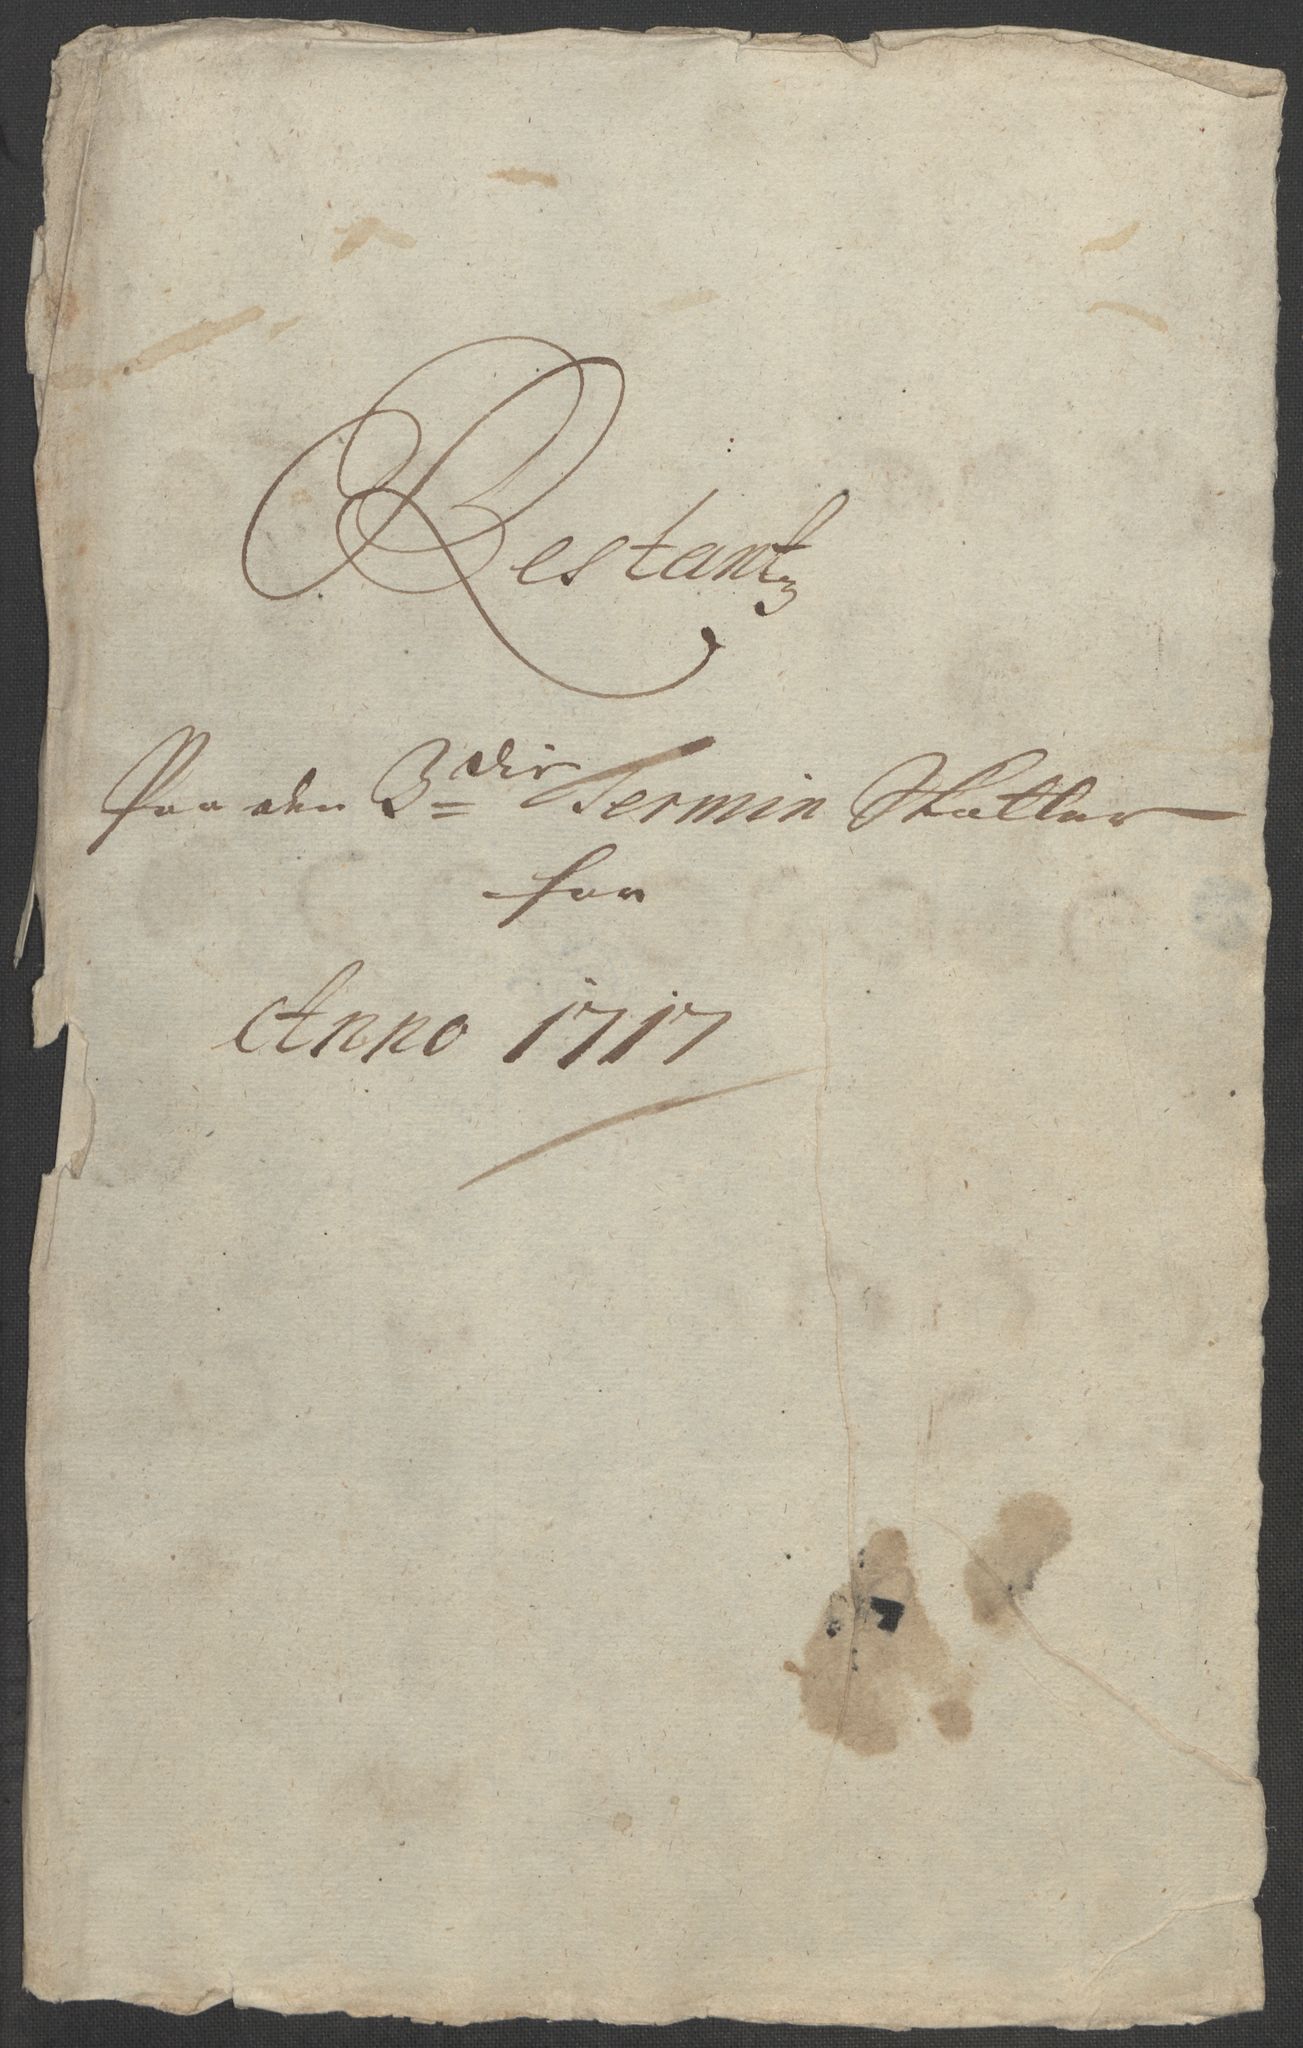 Restantz
Paa den 3die Termin Skatter
for
Anno 1717